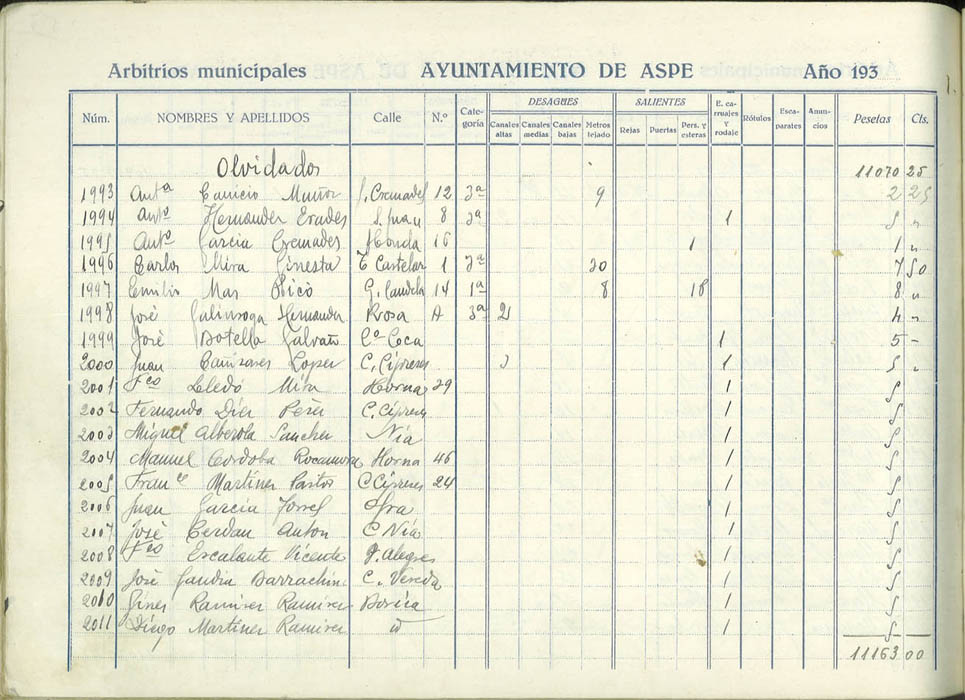 Arbitrios municipales AYUNTAMIENTO DE ASPE Año 193
Núm. NOMBRES Y APELLIDOS Calle N.º Categoría DESAGUES Canales altas Canales medias Canales bajas Metros tejado SALIENTES Rejas Puertas Pers. y esteras E. carruajes y rodaje Rótulos Escaparates Anuncios Pesetas Cts.
Olvidados 11070 25
1993 Antª Muñoz Cremades 12 3ª 9 2 25
1994 Antº Hernandez Erades S. Juan 8 3ª 1 5 "
1995 Antº Garcia Cremades Honda 16 1 1 "
1996 Carlos Mira Ginesta E Castelar 1 3ª 30 7 50
1997 Emilio Mas Picó G. Candela 14 1ª 8 18 8 "
1998 José Galinsoga Hernandez Rosa A 3ª 2 4 "
1999 José Botella Galvañ Cº Coca 1 5 -
2000 Juan Cañizares Lopez C. Cipreses 1 5 "
2001 Fco Lledó Mira Horna 29 1 5
2002 Fernando Diez Perez C. Cipreses 1 5
2003 Miguel Alberola Sanchez Nia 1 5
2004 Manuel Cordoba Rocamora Horna 46 1 5
2005 Franco Martinez Pastor C Cipreses 24 1 5
2006 Juan Garcia 1 5
2007 José Cerdan Anton C Nia 1 5
2008 Fco Escalante Vicente P. Alegres 1 5
2009 José Gandia Barrachin C. Vereda 1 5
2010 Gines Ramirez Ramirez 1 5
2011 Diego Martinez Ramirez id 1 5
11163 00